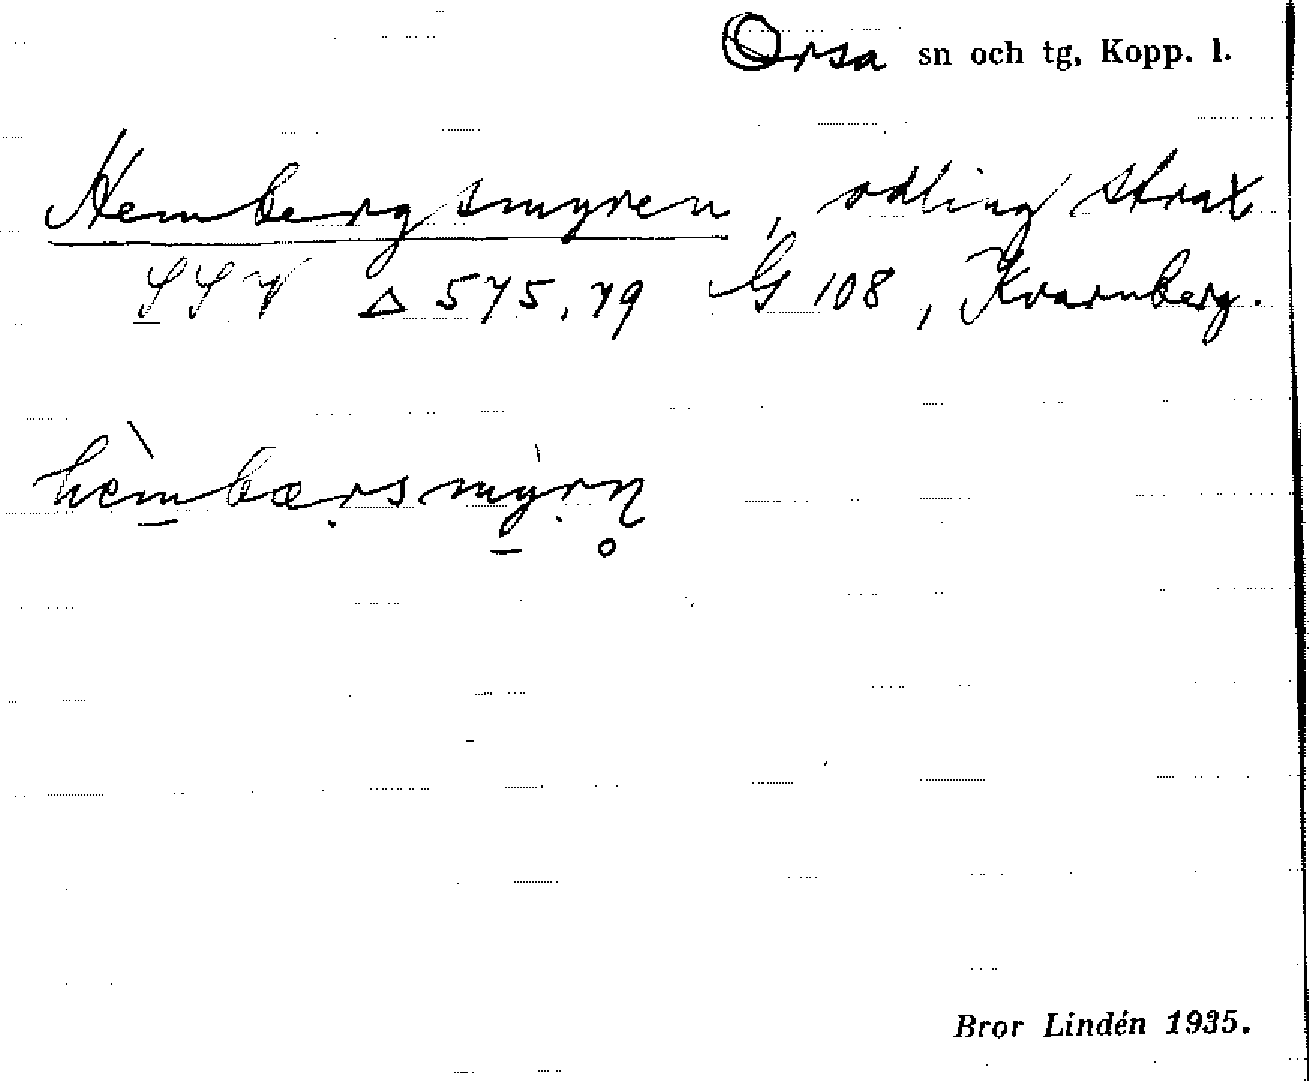 Orsa sn och tg, Kopp. l.
Hembergsmyren, odling strax
SSV Δ 575,79 G 108, Kvarnberg.
hèmbærsmýrn̥
Bror Lindén 1935.